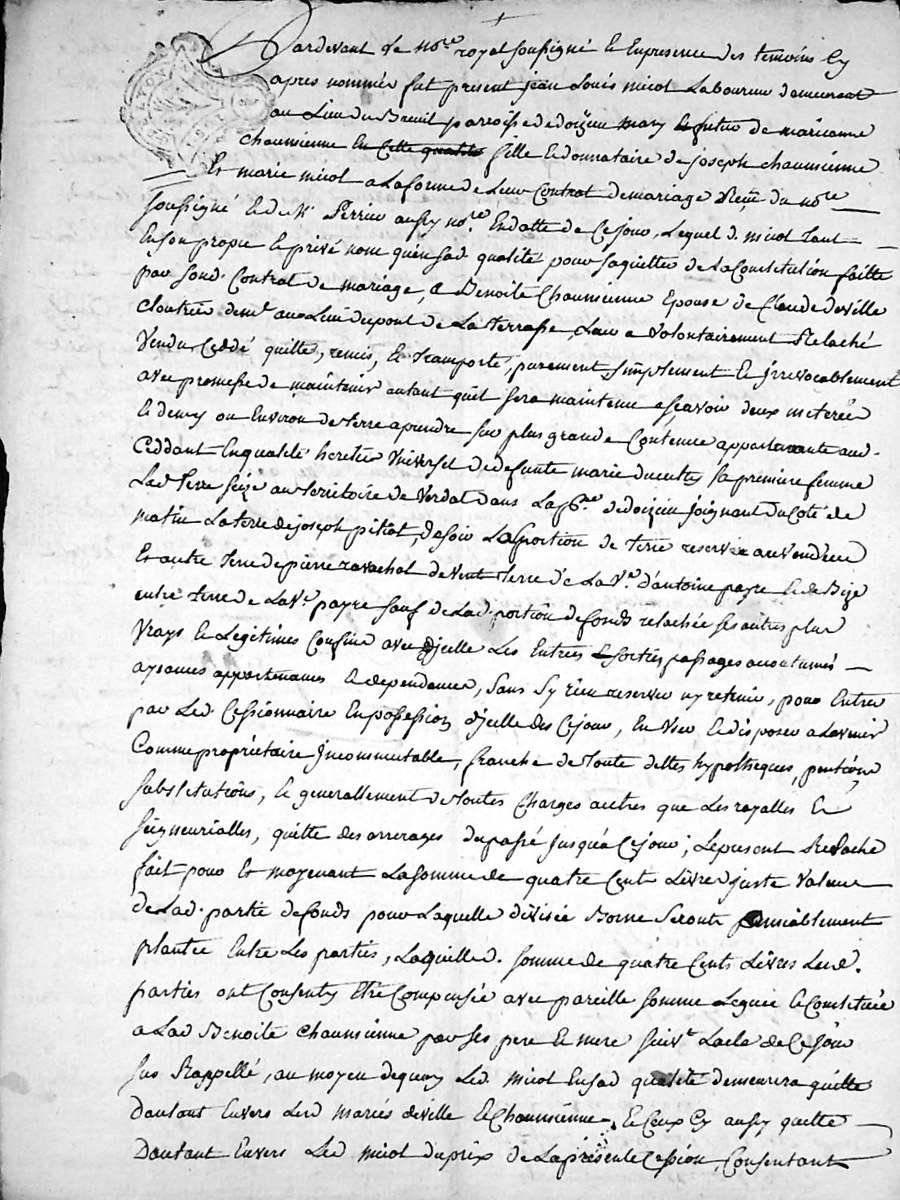 Pardevant le no.re royal soussigné & En presence des temoins Cy
apres nommés fut present jean Louis micol Laboureur demeurant
au Lieu du Breuil parroisse de doizieu mary & futur de marianne
chaumienne En Cette qualité fille & donnataire de joseph chaumienne
Et marie micol a La forme de Leur Contrat de mariage Reçu du no.re
soussigné & de M.e Perrin aussy no.re En datte de Ce jour, Lequel d. micol Tant
En son propre & privé nom qu'en sad. qualité pour s'aquitter de La Constitution faitte
par sond. Contrat de mariage, a Benoite Chaumienne Epouse de Claude deville
Cloutier dem.t au Lieu du pont de La terrasse, Luy a volontairement Relaché
Vendu, Ceddé, quitté, remis, & transporté, purement simplement & jrrevocablement
avec promesse de maintenir autant qu'il sera maintenu asçavoir deux meterée
& demy ou Environ de terre a prendre sur plus grande Contenue appartenante aud.
Ceddant En qualité heritier Universel de defunte marie sa premiere femme
Lad. Terre size au territoire de Verdat dans La p.sse de doizieu joignant du Coté de
matin La terre de joseph pitiot, de soir La portion de terre reservée au vendeur
Et autre Terre de pierre ravachol de vent Terre de La V.e d'antoine payre & de Bize
entre Terre de La V.e payre sauf de Lad. portion de fonds relachée ses autres plus
Vrays & Legitimes Confins avec jcelle Les Entrées & sorties passages accoutumés
aysances appartenances & dependances, sans s'y rien reserver ny retenir, pour Entrer
par Led. Cessionnaire En possession d'jcelle des Ce jour, En User & disposer a L'avenir
Comme proprietaire jncommutable, franche de Toute dettes hypotheques, pentions
substitutions, & generallement de toutes Charges autres que Les royalles &
seigneurialles, quitte des arrerages du passé jusqu'a Ce jour; Le present Relaché
fait pour Et moyenant La somme de quatre Cent Livres juste Valeur
de Lad. partie de fonds pour Laquelle divisée Borne seront amiablement
plantée Entre Les parties, Laquelle d. somme de quatre Cents Livres Lesd.
parties ont Consenty Etre Compensée avec pareille somme Leguée & Constituée
a Lad. Benoite Chaumienne par ses pere & mere suiv.t L'acte de Ce jour
sus Rappellé, au moyen dequoy Led. micol En sad. qualité demeurera quitte
d'autant Envers Lesd. mariés deville & Chaumienne & Ceux Cy aussy quitte
d'autant Envers Led. micol du prix de La présente Cession, Consentant